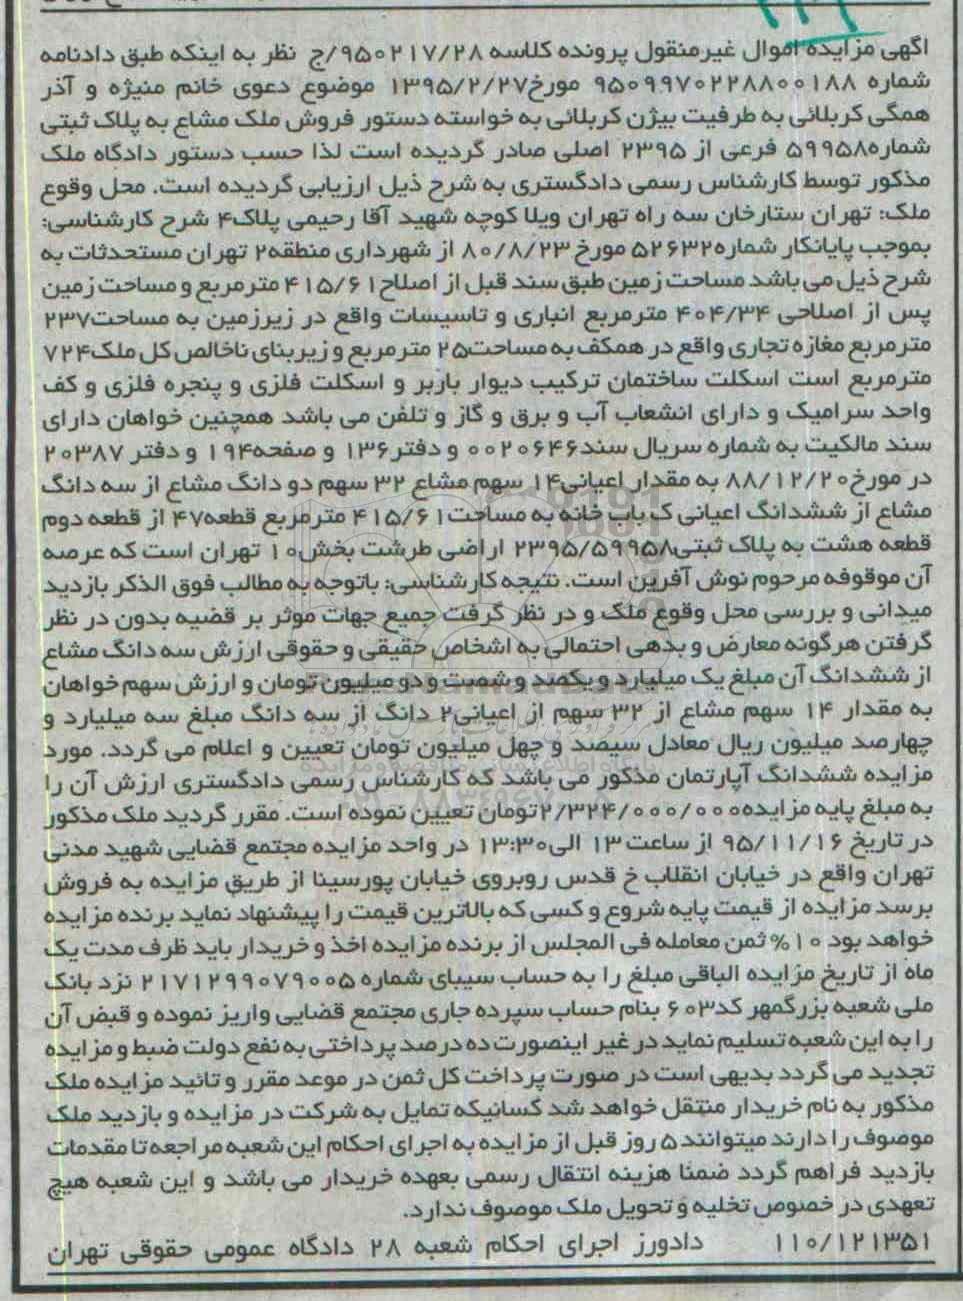 آگهی مزایده اموال غیرمنقول پرونده کلاسه ۹۵۰۲۱۷/۲۸/ج نظر به اینکه طبق دادنامه
شماره ۹۵۰۹۹۷۰۲۲۸۸۰۰۱۸۸ مورخ۱۳۹۵/۲/۲۷ موضوع دعوی خانم منیژه و آذر
همگی کربلائی به طرفیت بیژن کربلائی به خواسته دستور فروش ملک مشاع به پلاک ثبتی
شماره۵۹۹۵۸ فرعی از ۲۳۹۵ اصلی صادر گردیده است لذا حسب دستور دادگاه ملک
مذکور توسط کارشناس رسمی دادگستری به شرح ذیل ارزیابی گردیده است. محل وقوع
ملک: تهران ستارخان سه راه تهران ویلا کوچه شهید آقا رحیمی پلاک۴ شرح کارشناسی:
بموجب پایانکار شماره۵۲۶۳۲ مورخ ۸۰/۸/۲۳ از شهرداری منطقه۲ تهران مستحدثات به
شرح ذیل می باشد مساحت زمین طبق سند قبل از اصلاح۴۱۵/۶۱ مترمربع و مساحت زمین
پس از اصلاحی ۴۰۴/۳۴ مترمربع انباری و تاسیسات واقع در زیرزمین به مساحت۲۳۷
مترمربع مغازه تجاری واقع در همکف به مساحت۲۵ مترمربع و زیربنای ناخالص کل ملک۷۲۴
مترمربع است اسکلت ساختمان ترکیب دیوار باربر و اسکلت فلزی و پنجره فلزی و کف
واحد سرامیک و دارای انشعاب آب و برق و گاز و تلفن می باشد همچنین خواهان دارای
سند مالکیت به شماره سریال سند۰۰۲۰۶۴۶ و دفتر۱۳۶ و صفحه۱۹۴ و دفتر ۲۰۳۸۷
در مورخ۸۸/۱۲/۲۰ به مقدار اعیانی۱۴ سهم مشاع ۳۲ سهم دو دانگ مشاع از سه دانگ
مشاع از ششدانگ اعیانی ک باب خانه به مساحت۴۱۵/۶۱ مترمربع قطعه۴۷ از قطعه دوم
قطعه هشت به پلاک ثبتی۲۳۹۵/۵۹۹۵۸ اراضی طرشت بخش۱۰ تهران است که عرصه
آن موقوفه مرحوم نوش آفرین است. نتیجه کارشناسی: باتوجه به مطالب فوق الذکر بازدید
میدانی و بررسی محل وقوع ملک و در نظر گرفت جمیع جهات موثر بر قضیه بدون در نظر
گرفتن هرگونه معارض و بدهی احتمالی به اشخاص حقیقی و حقوقی ارزش سه دانگ مشاع
از ششدانگ آن مبلغ یک میلیارد و یکصد و شصت و دو میلیون تومان و ارزش سهم خواهان
به مقدار ۱۴ سهم مشاع از ۳۲ سهم از اعیانی۲ دانگ از سه دانگ مبلغ سه میلیارد و
چهارصد میلیون ریال معادل سیصد و چهل میلیون تومان تعیین و اعلام می گردد. مورد
مزایده ششدانگ آپارتمان مذکور می باشد که کارشناس رسمی دادگستری ارزش آن را
به مبلغ پایه مزایده۲/۳۲۴/۰۰۰/۰۰۰تومان تعیین نموده است. مقرر گردید ملک مذکور
در تاریخ ۹۵/۱۱/۱۶ از ساعت ۱۳ الی۱۳:۳۰ در واحد مزایده مجتمع قضایی شهید مدنی
تهران واقع در خیابان انقلاب خ قدس روبروی خیابان پورسینا از طریق مزایده به فروش
برسد مزایده از قیمت پایه شروع و کسی که بالاترین قیمت را پیشنهاد نماید برنده مزایده
خواهد بود ۱۰% ثمن معامله فی المجلس از برنده مزایده اخذ و خریدار باید ظرف مدت یک
ماه از تاریخ مزایده الباقی مبلغ را به حساب سیبای شماره ۲۱۷۱۲۹۹۰۷۹۰۰۵ نزد بانک
ملی شعبه بزرگمهر کد۶۰۳ بنام حساب سپرده جاری مجتمع قضایی واریز نموده و قبض آن
را به این شعبه تسلیم نماید در غیر اینصورت ده درصد پرداختی به نفع دولت ضبط و مزایده
تجدید می گردد بدیهی است در صورت پرداخت کل ثمن در موعد مقرر و تائید مزایده ملک
مذکور به نام خریدار منتقل خواهد شد کسانیکه تمایل به شرکت در مزایده و بازدید ملک
موصوف را دارند میتوانند ۵ روز قبل از مزایده به اجرای احکام این شعبه مراجعه تا مقدمات
بازدید فراهم گردد ضمنا هزینه انتقال رسمی بعهده خریدار می باشد و این شعبه هیچ
تعهدی در خصوص تخلیه و تحویل ملک موصوف ندارد.
۱۱۰/۱۲۱۳۵۱ دادورز اجرای احکام شعبه ۲۸ دادگاه عمومی حقوقی تهران